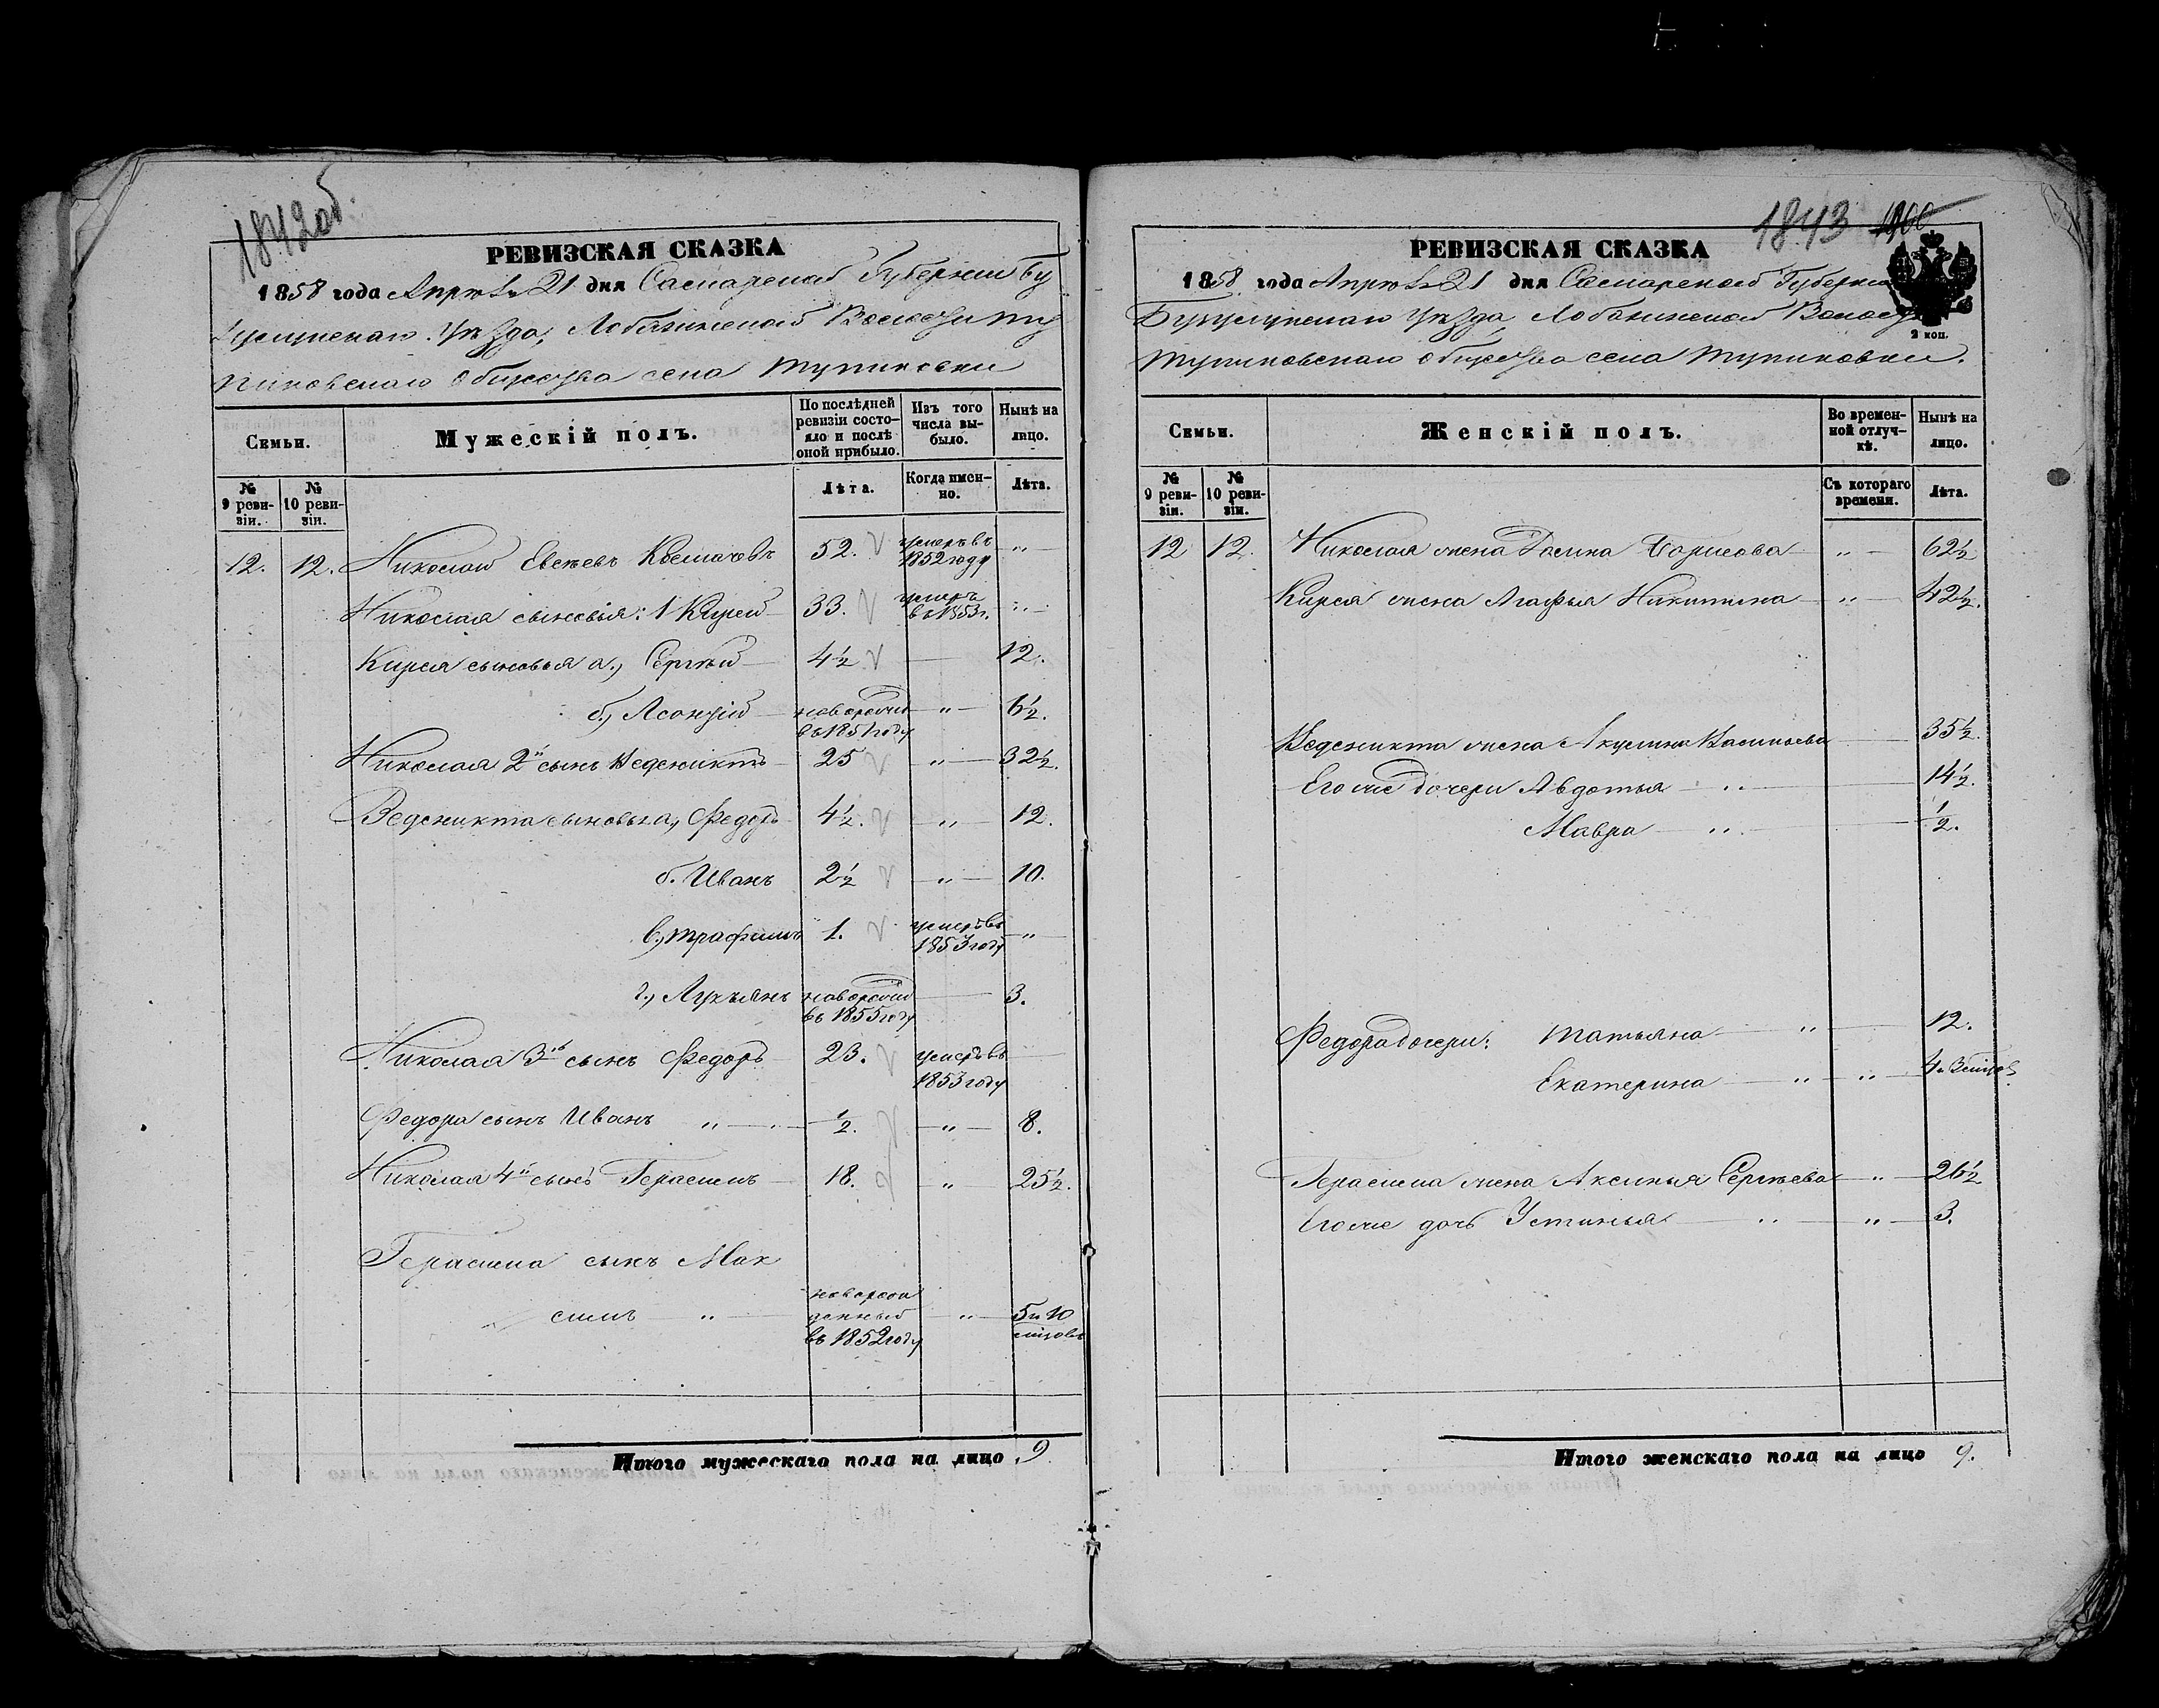 1842об.
РЕВИЗСКАЯ СКАЗКА
1858 года Апрѣля 21 дня Самарской Губернии Бу
гурусланскаго Уѣзда, Лобазинской Волости Ту
пиковскаго общества села Тупиковки
Семьи.
Мужескій полъ.
По послѣдней ревизіи состояло и послѣ оной прибыло.
Изъ того числа выбыло.
Нынѣ на лицо.
№ 9 ревизіи.
№ 10 ревизіи.
Лѣта.
Когда именно.
Лѣта.
12. 12. Николай Евсѣевъ 52. умеръ въ 1852 году „
Николая сыновья: 1 Кирей 33. умеръ въ 1853 г. „
Кирея сыновья а., Сергѣй 4½ 12.
б., Леонтій новорожд въ 1851 году „ 6½.
Николая 2й сынъ Ведениктъ 25 „ 32½.
Веденикта сыновья а, Федоръ 4½. „ 12.
б. Иванъ 2½ „ 10.
в., Трафимъ 1. умеръ въ 1853 году „
г., Лукьянъ новорожд въ 1855 году 3.
Николая 3й сынъ Федоръ 23. умеръ въ 1853 году
Федора сынъ Иванъ „ ½. „ 8.
Николая 4й сынъ Герасимъ 18. „ 25½.
Герасима сынъ Мак
симъ „ новорож денный въ 1852 году „ 5 и 10 мѣсяцовъ
Итого мужескаго пола на лицо 9.
1843 1900
РЕВИЗСКАЯ СКАЗКА
1858 года Апрѣля 21 дня Самарской Губерніи
2 коп.
Бугурусланскаго Уѣзда Лобазинской Волости
Тупиковскаго общества села Тупиковки.
Семьи.
Женскій полъ.
Во временной отлучкѣ.
Нынѣ на лицо.
№ 9 ревизіи.
№ 10 ревизіи.
Съ котораго времени.
Лѣта.
12 12. Николая жена Борисова „ 62½
Кирея жена Агафья Никитина „ 42½.
Веденикта жена Акулина Васильева 35½.
Его же дочери Авдотья „ 14½.
Мавра „ ½.
Федора дочери: Татьяна „ 12.
Екатерина „ „
Герасима жена Аксинья Сергѣева „ 26½
Его же дочь Устинья „ „ 3.
Итого женскаго пола на лицо 9.